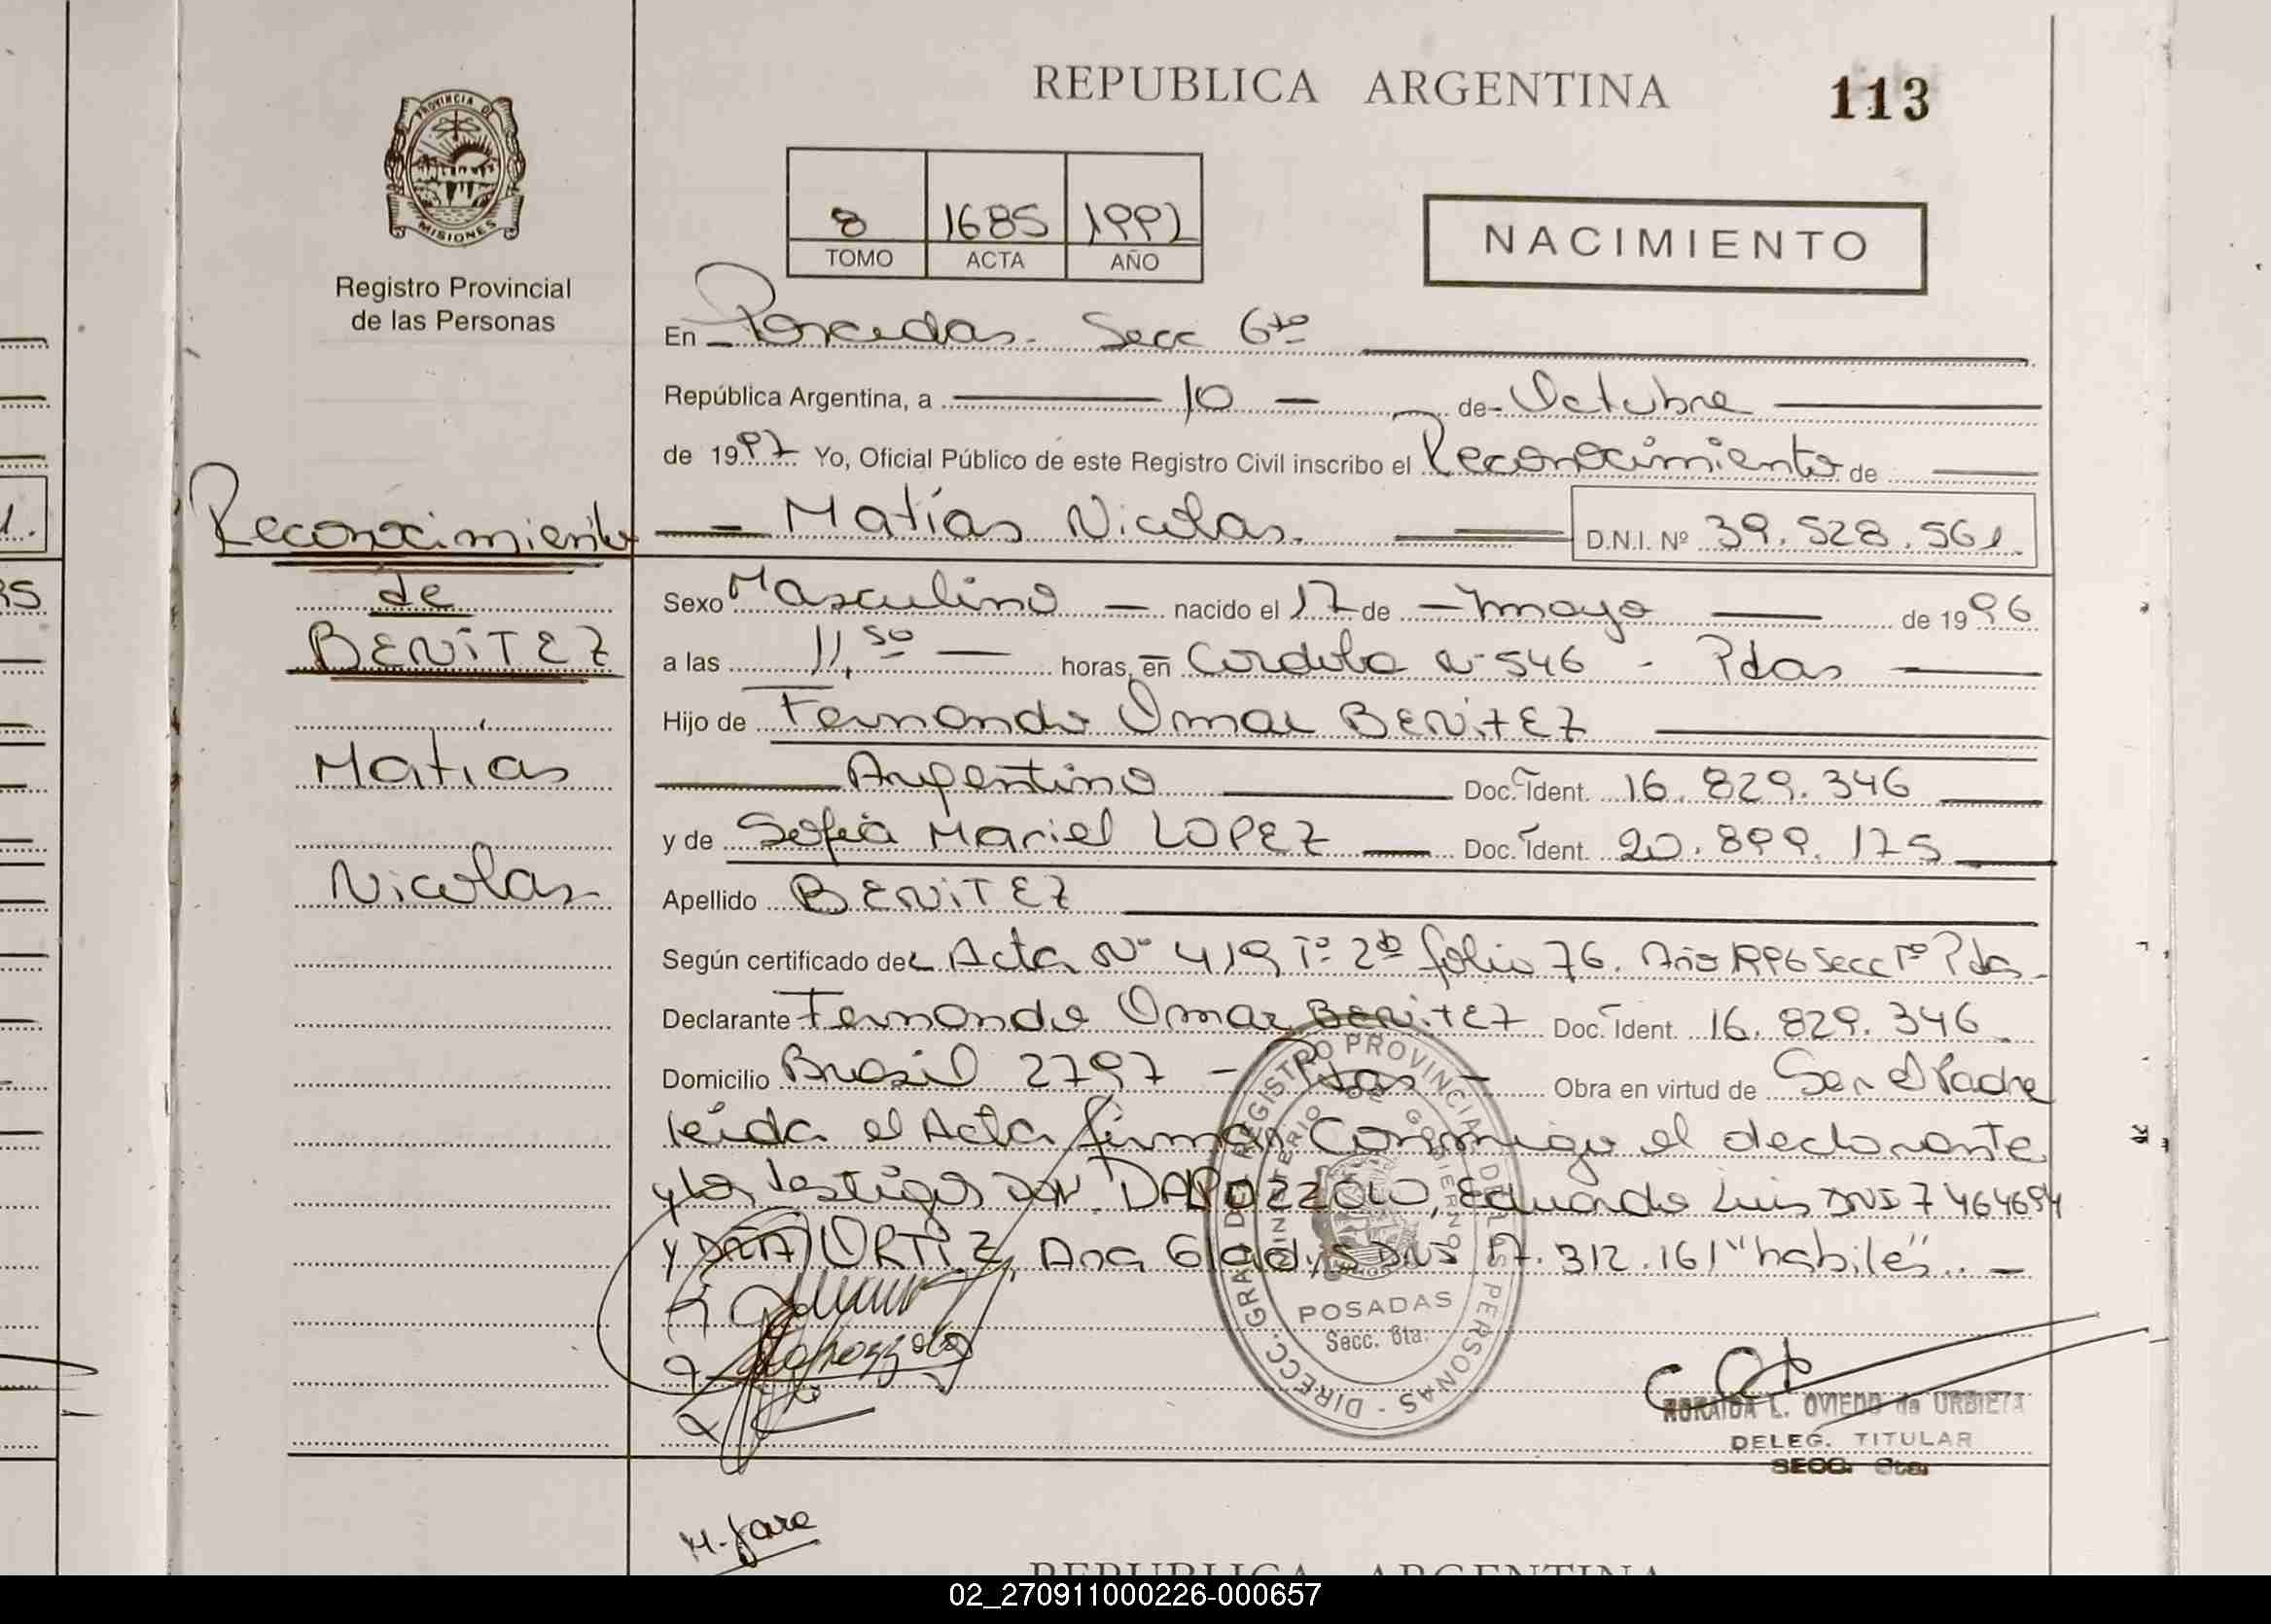 REPUBLICA ARGENTINA
113
PROVINCIA DE
MISIONES
Registro Provincial
de las Personas
8 1685 1997
TOMO ACTA AÑO
NACIMIENTO
En Posadas. Secc 6ta
República Argentina, a 10 de Octubre
de 1997 Yo, Oficial Público de este Registro Civil inscribo el Reconocimiento de
Matías Nicolas. D.N.I. Nº 39.528.561.
Reconocimiento
de
BENITEZ
Matías
Nicolas
Sexo Masculino nacido el 17 de mayo de 1996
a las 11,50 horas, en Cordoba Nº 546 - Pdas
Hijo de Fernando Omar BENITEZ
Argentino Doc. Ident. 16.829.346
y de Sofia Mariel LOPEZ Doc. Ident. 20.899.175
Apellido BENITEZ
Según certificado de Acta Nº 419 Tº 2º folio 76. Año 1996 Secc 1º Pdas
Declarante Fernando Omar BENITEZ Doc. Ident. 16.829.346
Domicilio Brasil 2797 - Pdas - Obra en virtud de Ser el Padre
leída el Acta firman Conmigo el declarante
y los testigos DON. DALPOZZOLO, Eduardo Luis DNI 7464694
y DÑA ORTIZ, Ana Gladys DNI 17.312.161 "habiles".. -
DIRECC. GRAL. DEL REGISTRO PROVINCIAL DE LAS PERSONAS -
MINISTERIO DE GOBIERNO
POSADAS
Secc. 6ta.
L. OVIEDO de URBIETA
DELEG. TITULAR
SECC. 6ta.
REPUBLICA ARGENTINA
02_270911000226-000657